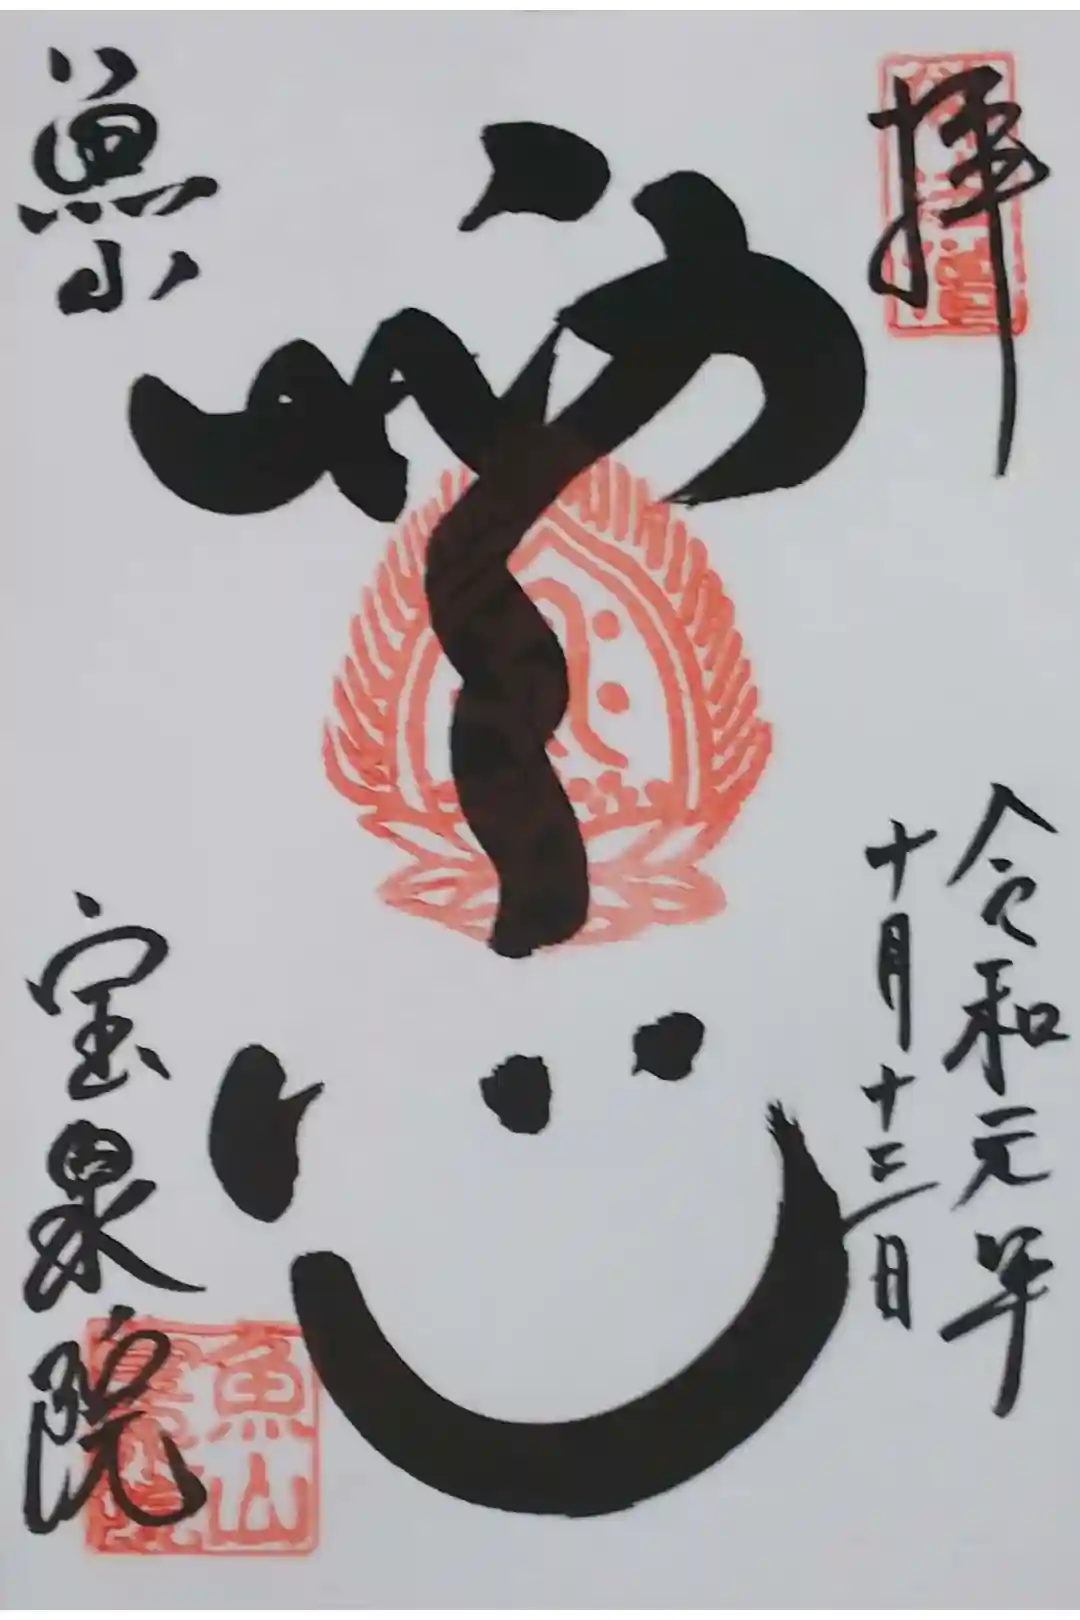 拝
令和元年
十月十三日
心
魚山
宝泉院
魚山